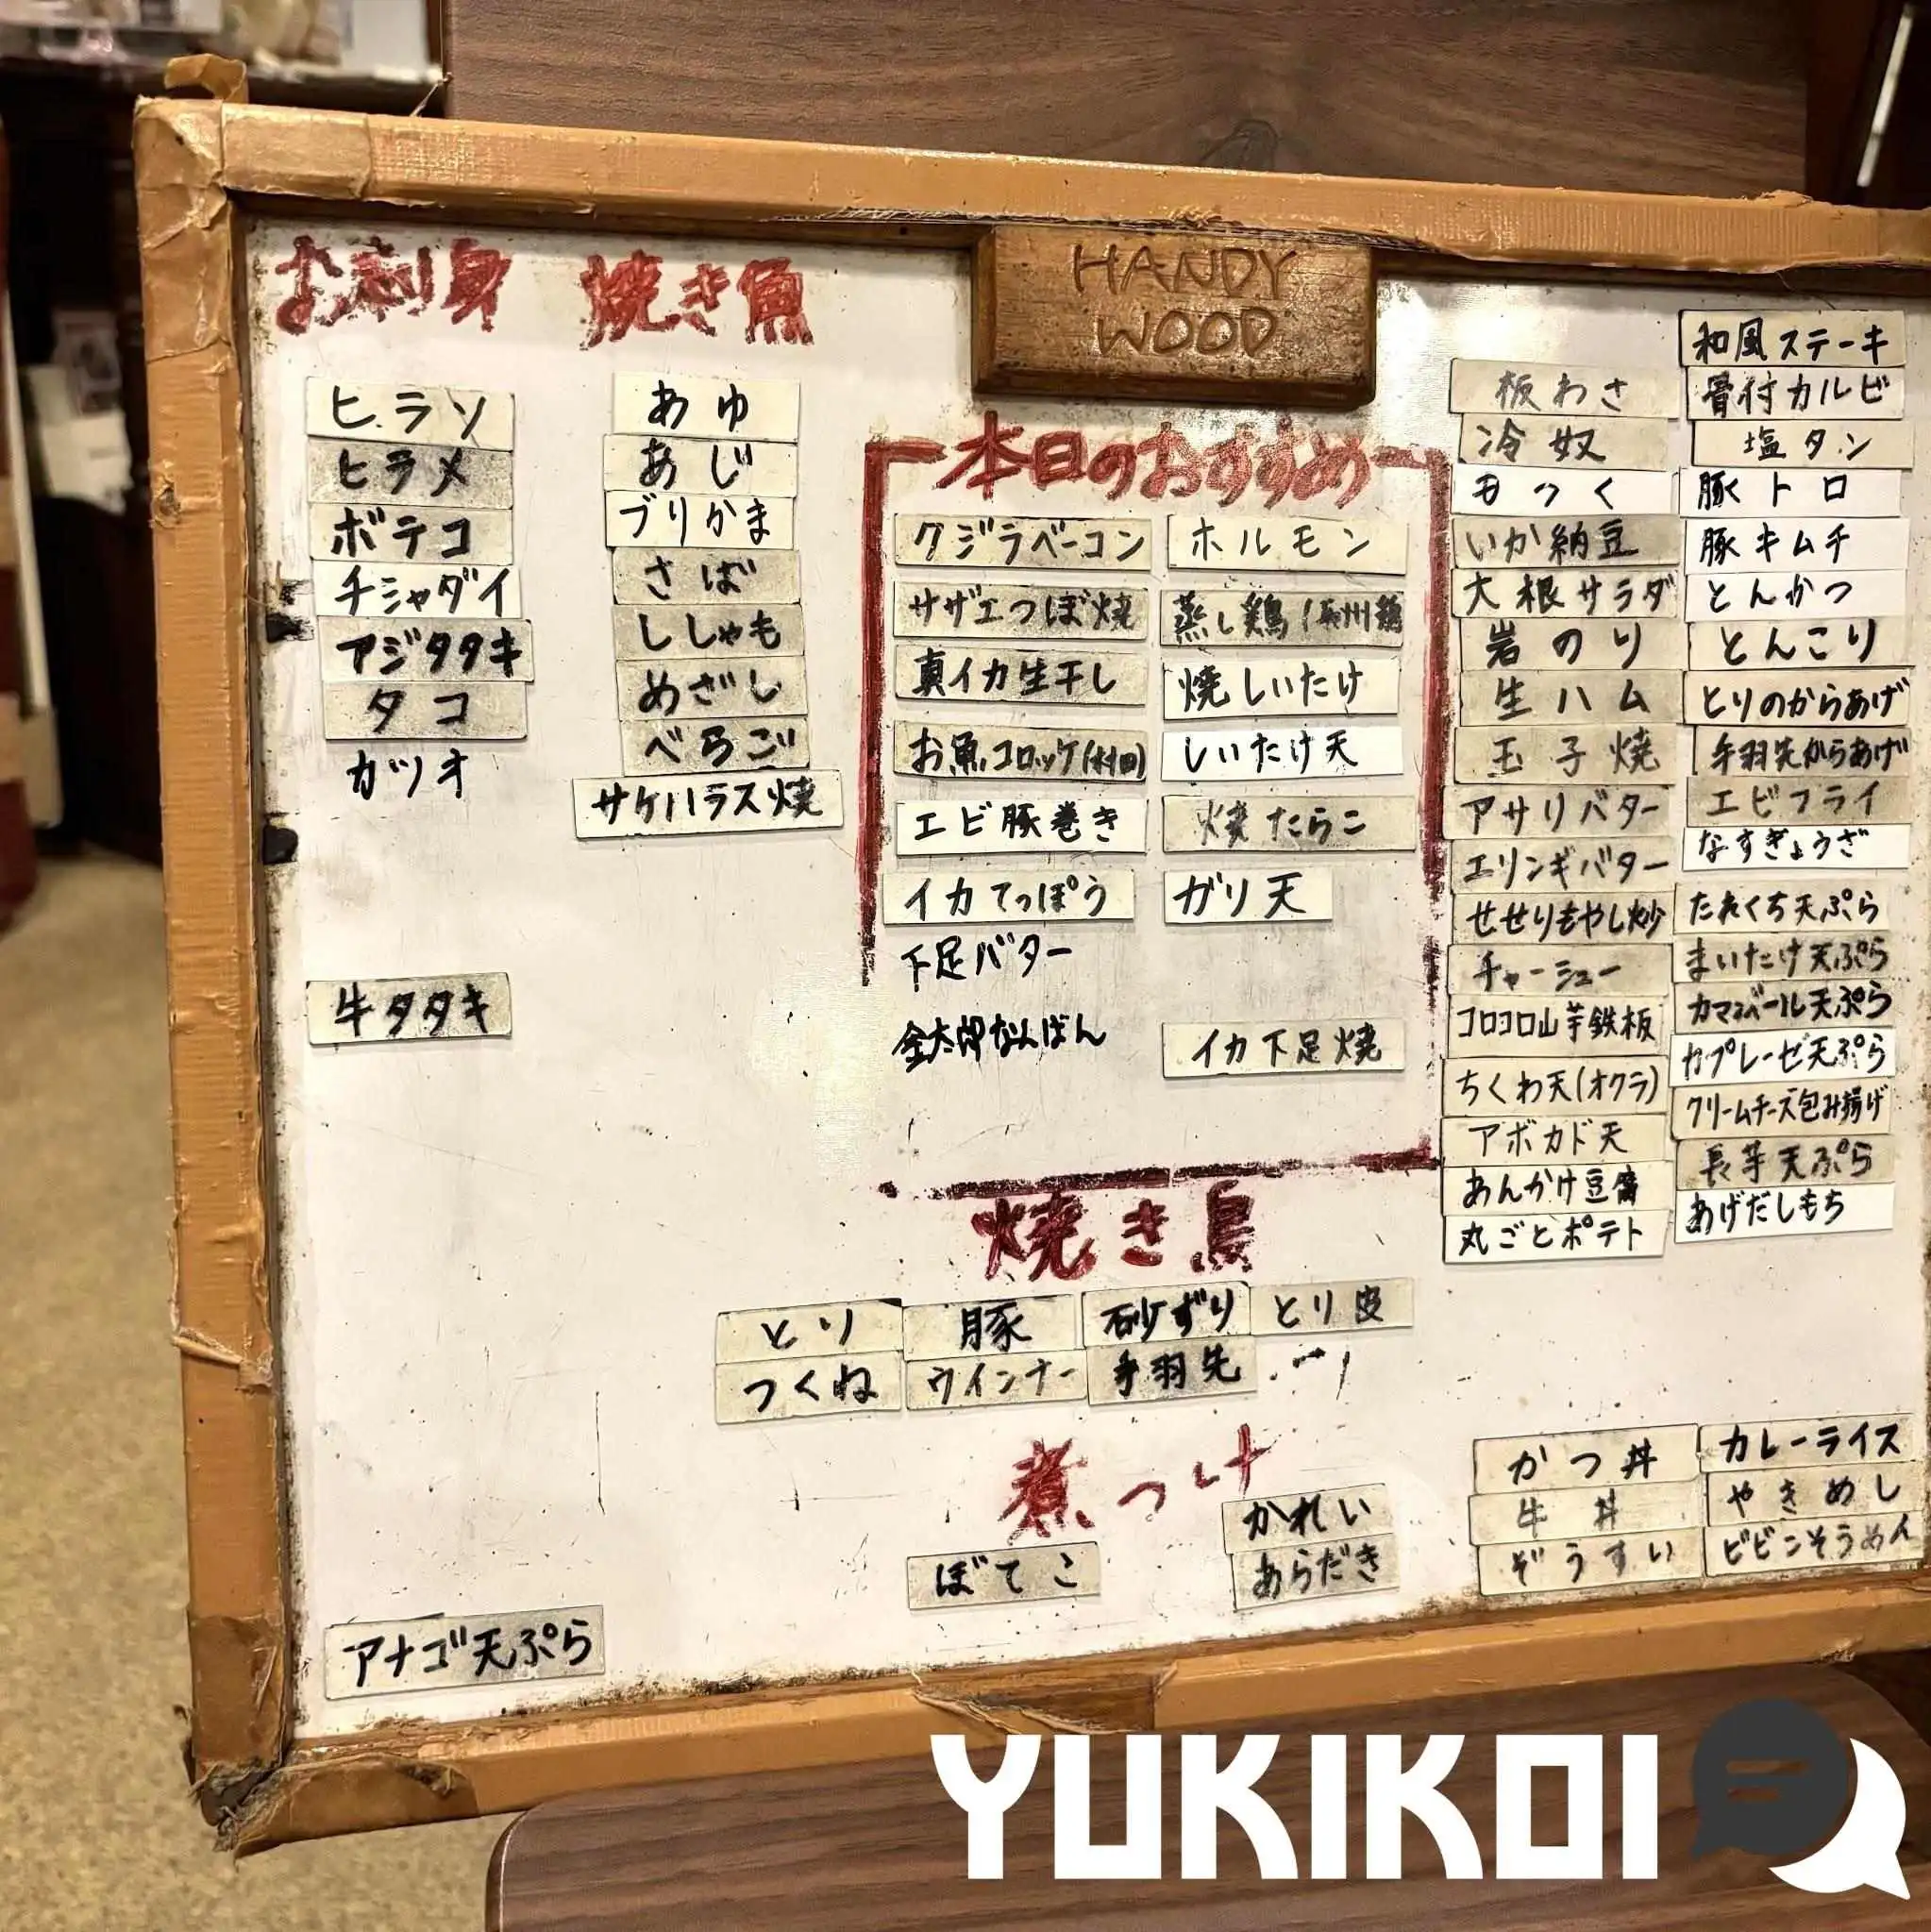 お刺身
ヒラソ
ヒラメ
ボテコ
チシャダイ
アジタタキ
タコ
カツオ
牛タタキ
アナゴ天ぷら
焼き魚
あゆ
あじ
ブリかま
さば
ししゃも
めざし
べらご
サケハラス焼
HANDY
WOOD
本日のおすすめ
クジラベーコン
サザエつぼ焼
真イカ生干し
お魚コロッケ(村田)
エビ豚巻き
イカてっぽう
下足バター
金太郎なんばん
ホルモン
蒸し鶏(長州鶏
焼しいたけ
しいたけ天
焼たらこ
ガリ天
イカ下足焼
焼き鳥
とり
豚
砂ずり
とり皮
つくね
ウインナー
手羽先
煮つけ
ぼてこ
かれい
あらだき
板わさ
冷奴
もつく
いか納豆
大根サラダ
岩のり
生ハム
玉子焼
アサリバター
エリンギバター
せせりもやし炒
チャーシュー
コロコロ山芋鉄板
ちくわ天(オクラ)
アボカド天
あんかけ豆腐
丸ごとポテト
和風ステーキ
骨付カルビ
塩タン
豚トロ
豚キムチ
とんかつ
とんこり
とりのからあげ
手羽先からあげ
エビフライ
なすぎょうざ
たれくち天ぷら
まいたけ天ぷら
カマンベール天ぷら
カプレーゼ天ぷら
クリームチーズ包み揚げ
長芋天ぷら
あげだしもち
かつ丼
牛丼
ぞうすい
カレーライス
やきめし
ビビンそうめん
YUKIKOI